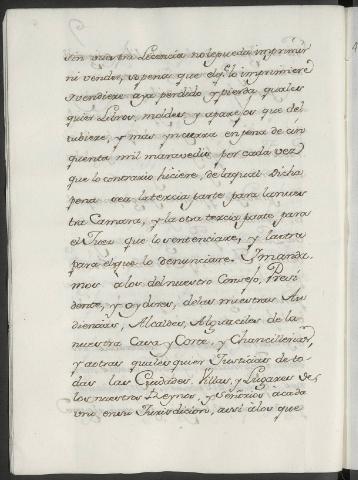 sin vuestra Licencia no lo pueda imprimir
ni vender, so pena que el q.e lo imprimiere
ò vendiere aya perdido y pierda quales
quier Libros, moldes, y aparejos que del
tubiere, y mas yncurra en pena de cin
quenta mil maravedis por cada vez
que lo contrario hiciere, de la qual dicha
pena sea la tercia parte para la nues
tra Camara, y la otra tercia parte para
el Juez que lo sentenciare, y la otra
para el que lo denunciare. Y manda
mos à los del nuestro Consejo, Presi
dente, y oydores, de las nuestras Au
diencias, Alcaldes, Alguaciles de la
nuestra Casa y Corte, y Chancillerias,
y a otras quales quier Justicias de to
das las Ciudades, Villas, y Lugares de
los nuestros Reynos, y Señorios à cada
uno en su Jurisdicion, assi à los que